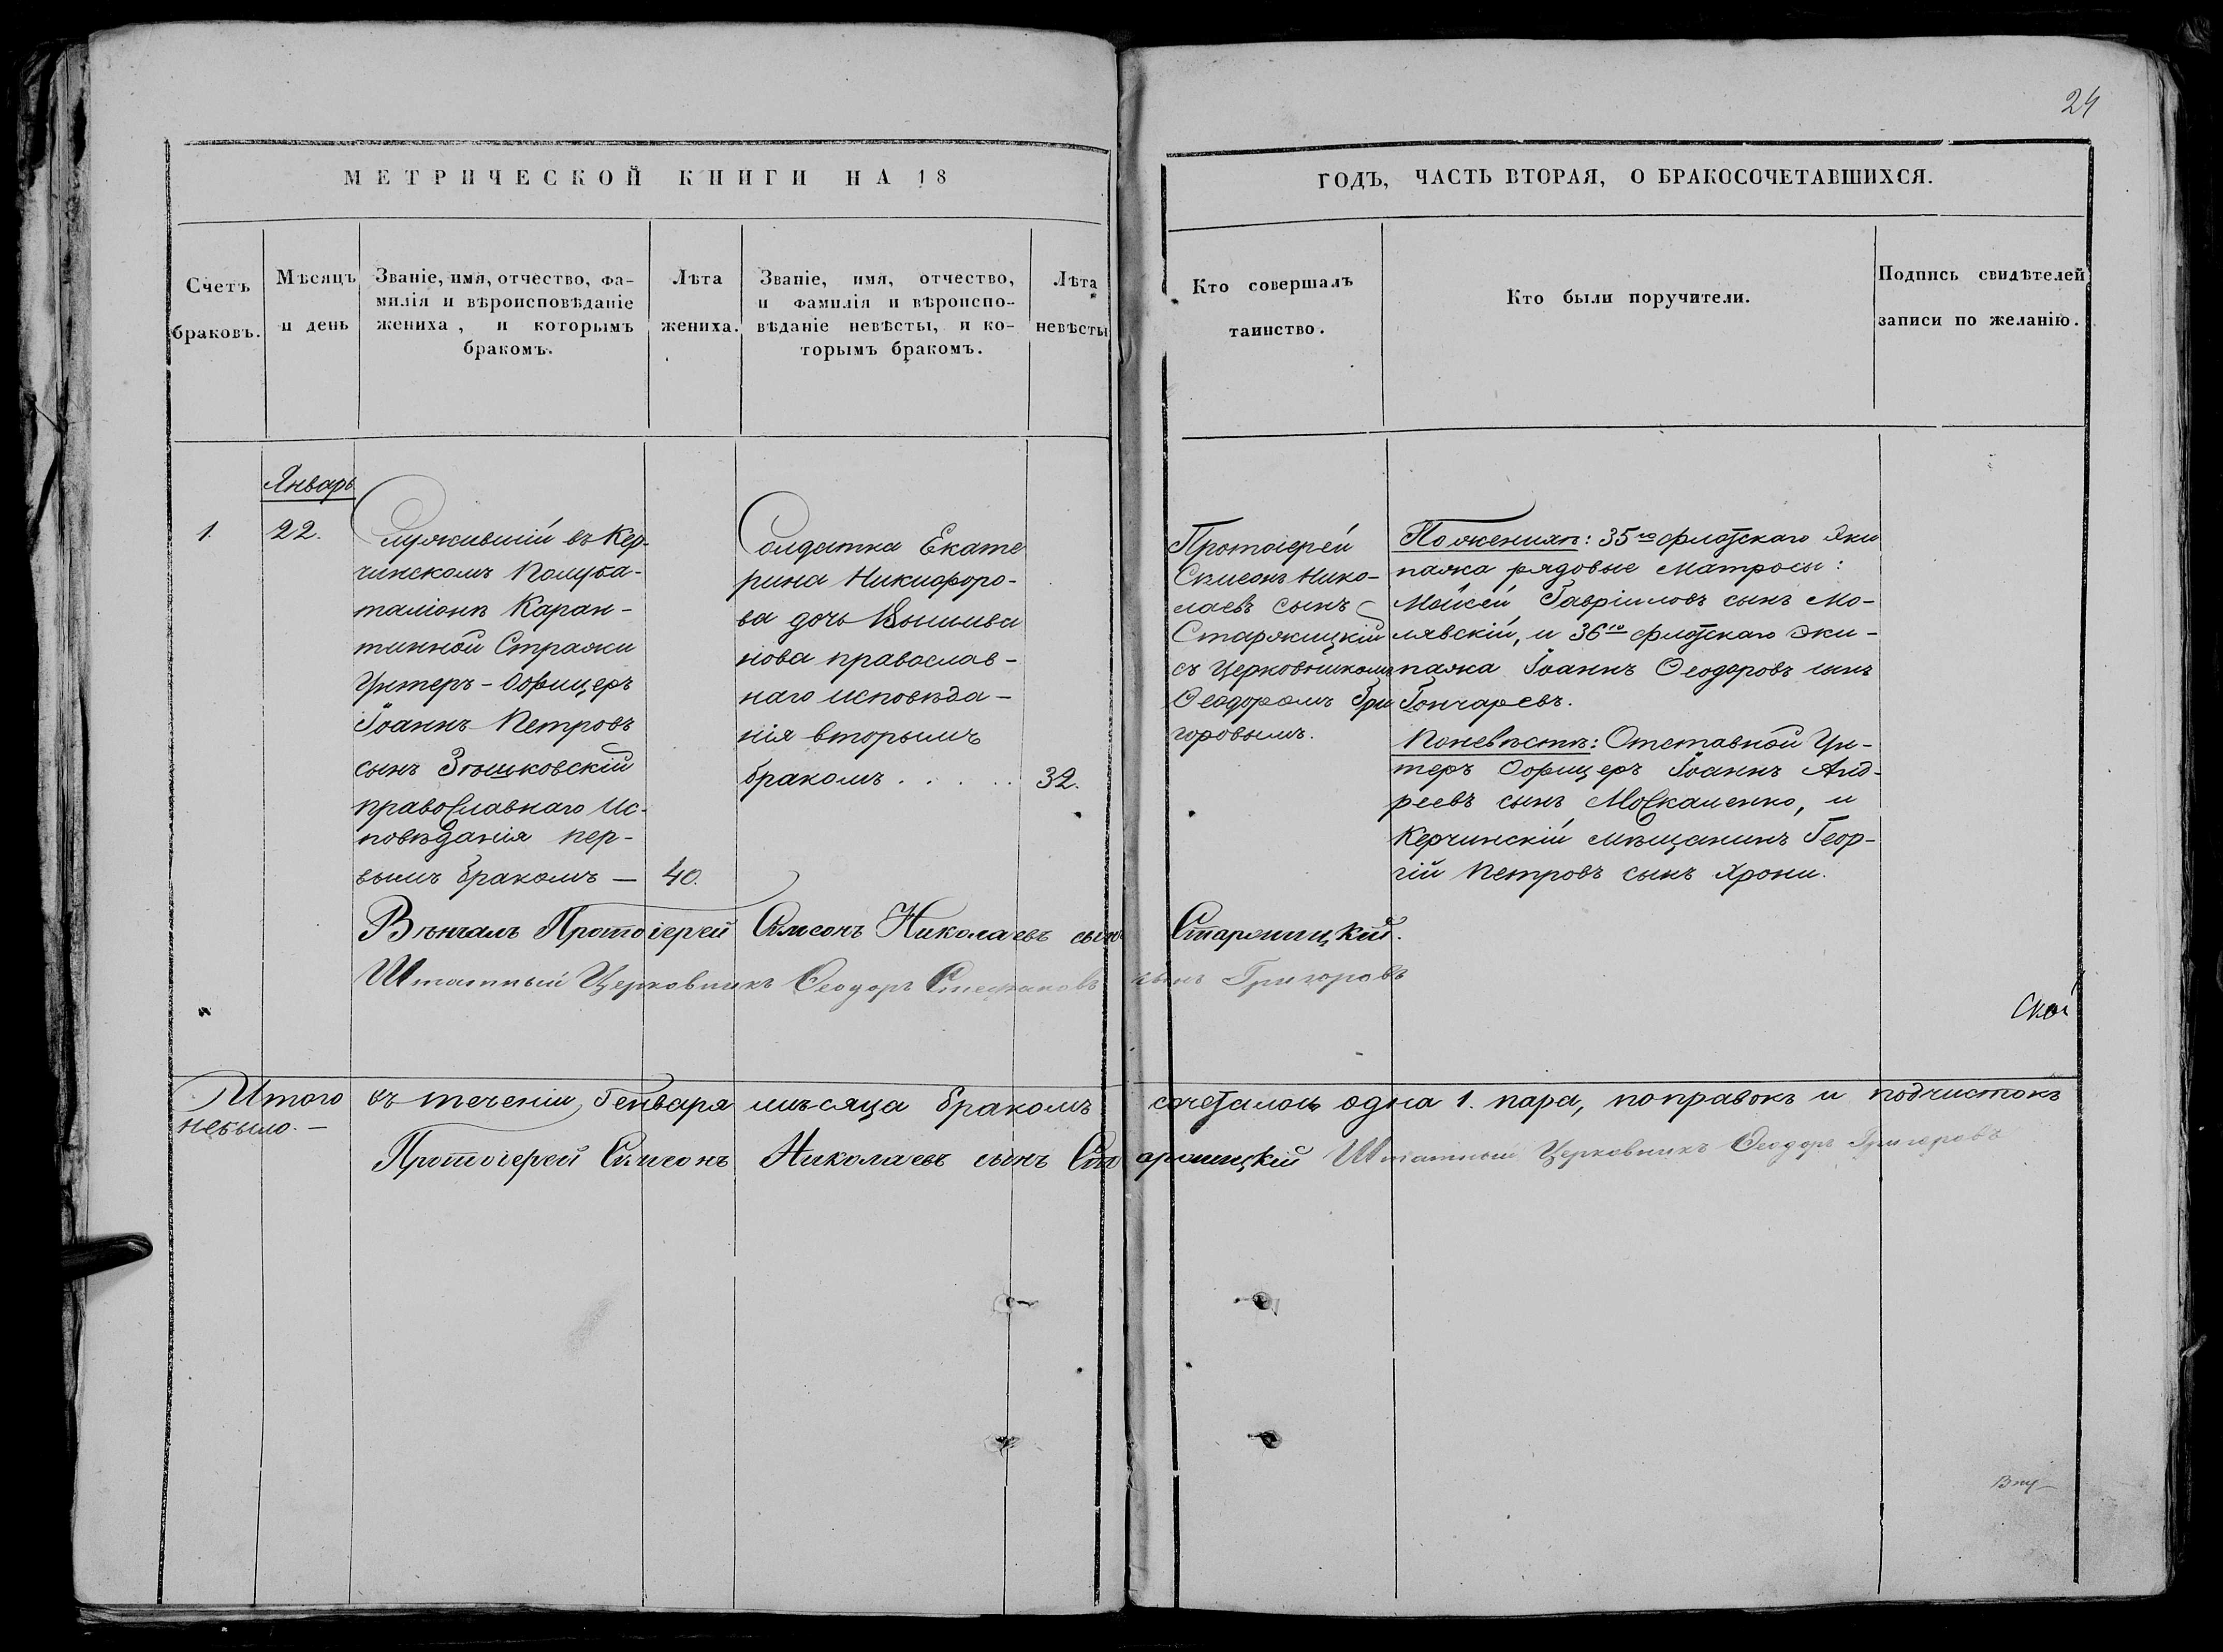 24
МЕТРИЧЕСКОЙ КНИГИ НА 18
ГОДЪ, ЧАСТЬ ВТОРАЯ, О БРАКОСОЧЕТАВШИХСЯ.
Счетъ
браковъ.
Мѣсяцъ
и день
Званіе, имя, отчество, фа-
милія и вѣроисповѣданіе
жениха, и которымъ
бракомъ.
Лѣта
жениха.
Званіе, имя, отчество,
и фамилія и вѣроиспо-
вѣданіе невѣсты, и ко-
торымъ бракомъ.
Лѣта
невѣсты
Кто совершалъ
таинство.
Кто были поручители.
Подпись свидѣтелей
записи по желанію.
1.
Январь
22.
Служившій въ Кер-
чинскомъ Полуба-
таліонѣ Каран-
тинной Стражи
Унтеръ-Офицеръ
Іоаннъ Петровъ
сынъ
Православнаго Ис-
повѣданія пер-
вымъ бракомъ —
40.
Солдатка Екате
рина Никифоро-
ва дочь
нова православ-
наго исповѣда-
нія вторымъ
бракомъ . . . . .
32.
Протоіерей
Сѵмеонъ Нико-
лаевъ сынъ
Старжицкій
съ Церковникомъ
Ѳеодоромъ Гри
горовымъ.
По женихѣ: 35го флотскаго Эки
пажа рядовые матросы:
Мойсей Гавріиловъ сынъ Мо-
лявскій, и 36го флотскаго Эки-
пажа Іоаннъ Ѳеодоровъ сынъ
Гончаревъ.
По невѣстѣ: Отставной Ун-
теръ Офицеръ Іоаннъ Анд-
реевъ сынъ Москаленко, и
Керчинскій мѣщанинъ Геор-
гій Петровъ сынъ Хрони.
Вѣнчалъ Протоіерей Сѵмеонъ Николаевъ сынъ Старжицкій.
Штатный Церковникъ Ѳеодоръ Стефановъ сынъ Григоровъ
Ской
Итого въ теченіи Генваря мѣсяца бракомъ сочеталось одна 1. пара, поправокъ и подчистокъ
небыло. —
Протоіерей Сѵмеонъ Николаевъ сынъ Старжицкій Штатный Церковникъ Ѳеодоръ Григоровъ